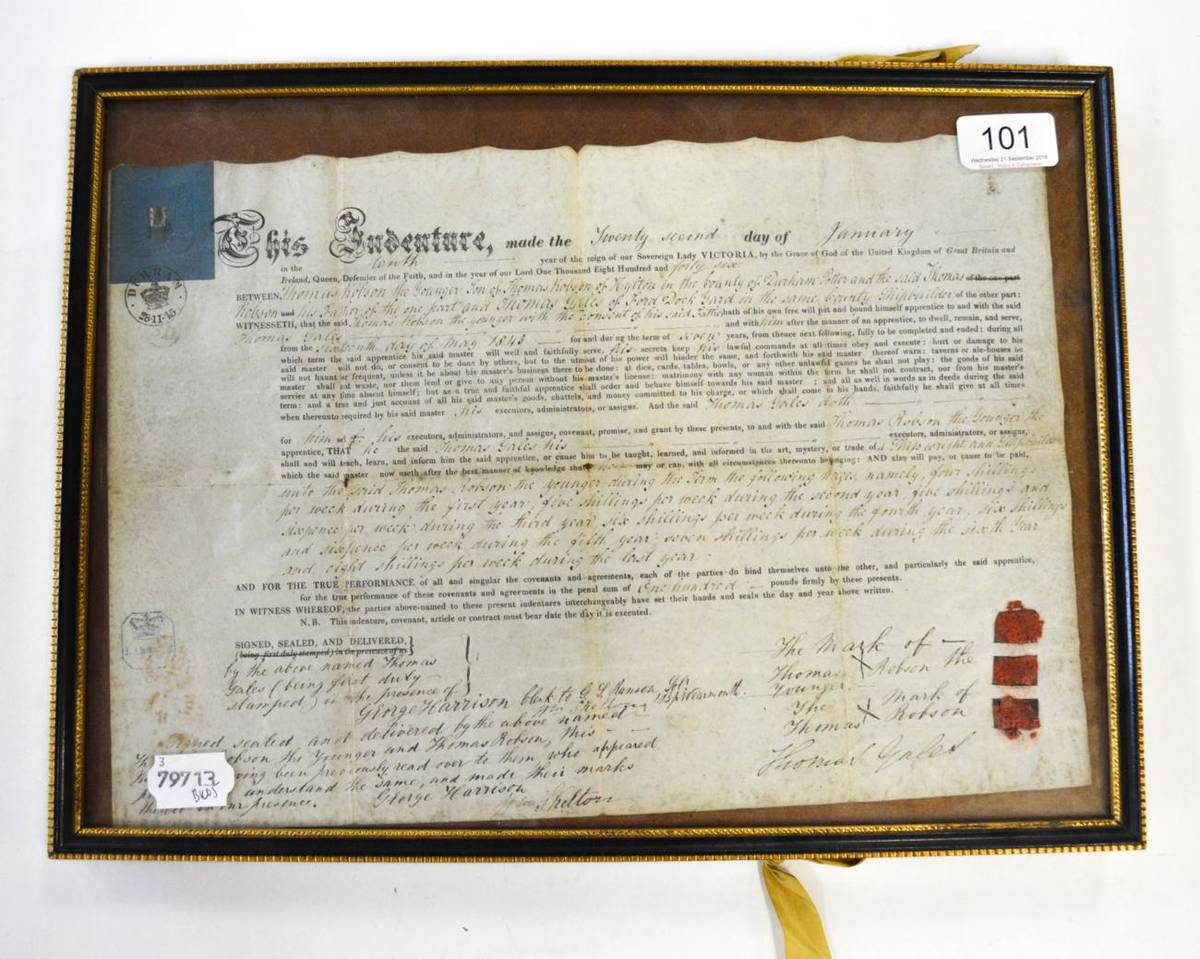 101
Wednesday 21 September 2016
This Indenture, made the Twenty second day of January
in the tenth year of the reign of our Sovereign Lady VICTORIA, by the Grace of God of the United Kingdom of Great Britain and
Ireland, Queen, Defender of the Faith, and in the year of our Lord One Thousand Eight Hundred and forty six
DURHAM
28·11·45
BETWEEN Thomas Robson the Younger Son of Thomas Robson of Hylton in the County of Durham Potter and the said Thomas of the one part
Robson his Father of the one part and Thomas Gales of Ford Dock Yard in the same County Shipbuilder of the other part:
WITNESSETH, that the said Thomas Robson the younger with the consent of his said Father hath of his own free will put and bound himself apprentice to and with the said
Thomas Gales and with him after the manner of an apprentice, to dwell, remain, and serve,
from the Sixteenth day of May 1843 for and during the term of seven years, from thence next following, fully to be completed and ended; during all
which term the said apprentice his said master will well and faithfully serve, his secrets keep his lawful commands at all times obey and execute: hurt or damage to his
said master will not do, or consent to be done by others, but to the utmost of his power will hinder the same, and forthwith his said master thereof warn: taverns or ale-houses he
will not haunt or frequent, unless it be about his master's business there to be done: at dice, cards, tables, bowls, or any other unlawful games he shall not play: the goods of his said
master shall not waste, nor them lend or give to any person without his master's license: matrimony with any woman within the term he shall not contract, nor from his master's
service at any time absent himself; but as a true and faithful apprentice shall order and behave himself towards his said master ; and all as well in words as in deeds during the said
term: and a true and just account of all his said master's goods, chattels, and money committed to his charge, or which shall come to his hands, faithfully he shall give at all times
when thereunto required by his said master his executors, administrators, or assigns. And the said Thomas Gales doth
for him self his executors, administrators, and assigns, covenant, promise, and grant by these presents, to and with the said Thomas Robson the Younger
apprentice, THAT he the said Thomas Gales his executors, administrators, or assigns,
shall and will teach, learn, and inform him the said apprentice, or cause him to be taught, learned, and informed in the art, mystery, or trade of a Shipwright and Shipbuilder
which the said master now useth after the best manner of knowledge that he may or can, with all circumstances thereunto belonging: AND also will pay, or cause to be paid,
unto the said Thomas Robson the younger during the Term the following wages, namely, four shillings
per week during the first year, five shillings per week during the second year five shillings and
sixpence per week during the third year, six shillings per week during the fourth year, six shillings
and sixpence per week during the fifth year; seven shillings per week during the sixth year
and eight shillings per week during the last year
AND FOR THE TRUE PERFORMANCE of all and singular the covenants and agreements, each of the parties do bind themselves unto the other, and particularly the said apprentice,
for the true performance of these covenants and agreements in the penal sum of One hundred pounds firmly by these presents.
IN WITNESS WHEREOF, the parties above-named to these present indentures interchangeably have set their hands and seals the day and year above written.
N.B. This indenture, covenant, article or contract must bear date the day it is executed.
SIGNED, SEALED, AND DELIVERED,
(being first duly stamped) in the presence of us
by the above named Thomas
Gales (being first duly
stamped) in the presence of
George Harrison clerk to G S Ranson
Wm Skelton
The Mark of
Thomas X Robson the
Younger
The Mark of
Thomas X Robson
Thomas Gales
Signed sealed and delivered by the above named
Robson the Younger and Thomas Robson, this
having been previously read over to them, who appeared
understand the same, and made their marks
in our presence.
George Harrison
Wm Skelton
3
79773
BKOJ